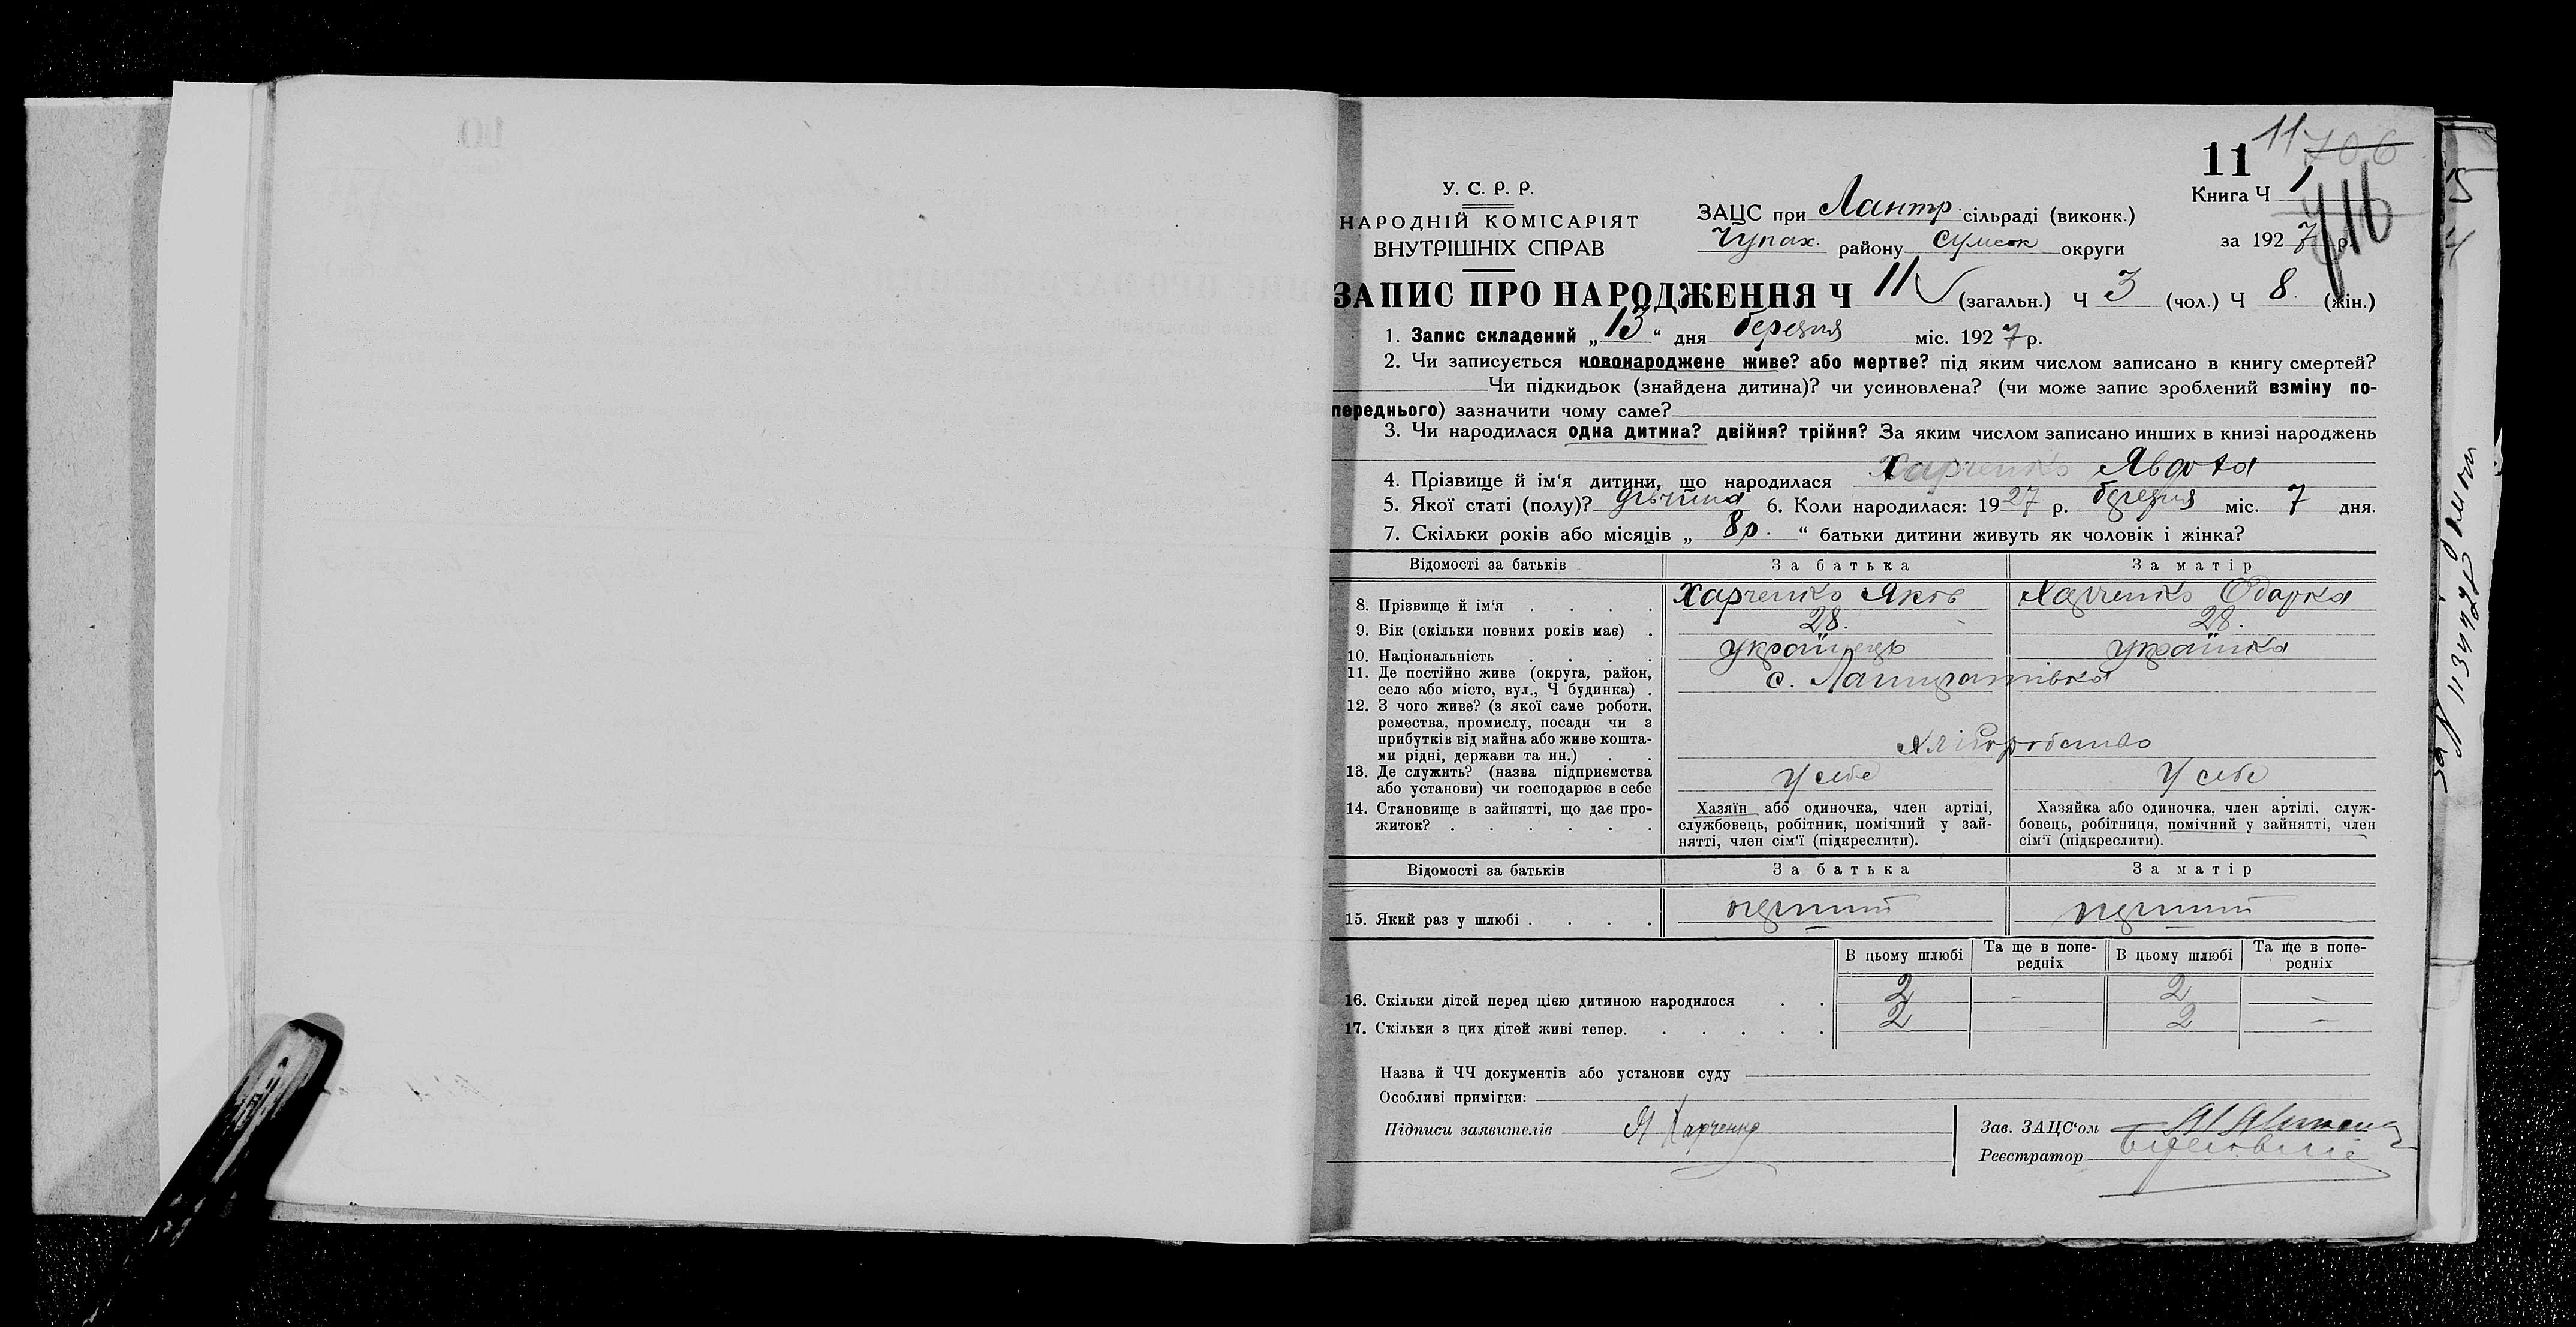 11 11 706
Книга Ч 1
716
У. С. Р. Р.
НАРОДНІЙ КОМІСАРІЯТ
ВНУТРІШНІХ СПРАВ
ЗАЦС при Лантр. сільраді (виконк.)
Чупах. району Сумськ округи
за 1927 р.
ЗАПИС ПРО НАРОДЖЕННЯ Ч 11 (загальн.) Ч 3 (чол.) Ч 8. (жін.)
1. Запис складений „ 13 “ дня березня міс. 1927 р.
2. Чи записується новонароджене живе? або мертве? під яким числом записано в книгу смертей?
Чи підкидьок (знайдена дитина)? чи усиновлена? (чи може запис зроблений взміну по-
переднього) зазначити чому саме?
3. Чи народилася одна дитина? двійня? трійня? За яким числом записано инших в книзі народжень
4. Прізвище й ім'я дитини, що народилася Харченко Явдота
5. Якої статі (полу)? дівчина 6. Коли народилася: 1927 р. березня міс. 7 дня.
7. Скільки років або місяців „ 8 р. “ батьки дитини живуть як чоловік і жінка?
Відомості за батьків За батька За матір
8. Прізвище й ім'я . . . . Харченко Яків Харченко Одарка
9. Вік (скільки повних років має) . 28. 28.
10. Національність . . . . українець українка
11. Де постійно живе (округа, район,
село або місто, вул., Ч будинка) . с. Лантратівка
12. З чого живе? (з якої саме роботи,
ремества, промислу, посади чи з
прибутків від майна або живе кошта-
ми рідні, держави та ин.) . . Хліборобство
13. Де служить? (назва підприємства
або установи) чи господарює в себе У себе У себе
14. Становище в зайнятті, що дає про-
житок? . . . . . .
Хазяїн або одиночка, член артілі,
службовець, робітник, помічний у зай-
нятті, член сім'ї (підкреслити).
Хазяйка або одиночка, член артілі, служ-
бовець, робітниця, помічний у зайнятті, член
сім'ї (підкреслити).
Відомості за батьків За батька За матір
15. Який раз у шлюбі . . . . перший перший
В цьому шлюбі Та ще в попе-
редніх В цьому шлюбі Та ще в попе-
редніх
16. Скільки дітей перед цією дитиною народилося . . 2 - 2 -
17. Скільки з цих дітей живі тепер. . . . . . 2 - 2 -
Назва й ЧЧ документів або установи суду
Особливі примітки:
Підписи заявителів Я Харченко
Зав. ЗАЦС'ом
Реєстратор